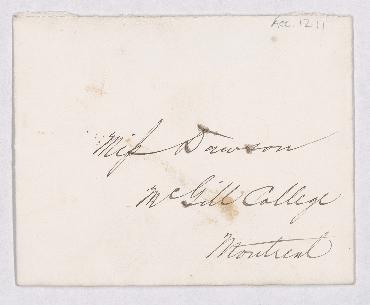 Acc. 1211
Miss Dawson
McGill College
Montreal